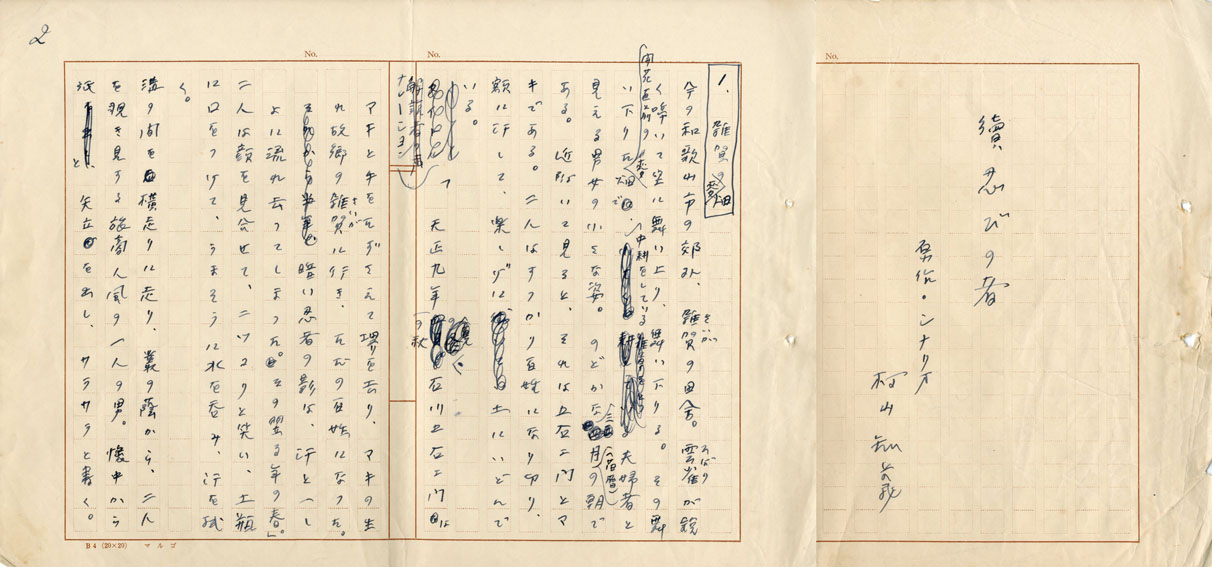 續忍びの者
原作・シナリオ
村山知義
No.
No.
No.
2
1. 雑賀の麥畑
今の和歌山市の郊外、雑賀の田舎。雲雀が鋭
さいか
ひばり
く啼いて空に舞い上り、舞い下りる。その舞
い下りた畑で、中耕をしている夫婦者と
開花直前の麥
見える男女の小さな姿。のどかな三月の朝で
(旧暦)
ある。近づいて見ると、それは五右ヱ門とマ
キである。二人はすっかり百姓になり切り、
額に汗して、楽しげに土にいどんで
いる。
解説者の声
ナレーション
「天正九年の秋、石川五右ヱ門は
マキとキをたずさえて堺を去り、マキの生
れ故郷の雑賀に行き、ただの百姓になった。
さいが
暗い忍者の影は、汗と一し
よに流れ去ってしまった。その翌る年の春」
二人は顔を見合せて、ニッコリと笑い、土瓶
に口をつけて、うまそうに水を呑み、汗を拭
く。
溝の間を横走りに走り、叢の蔭から、二人
を覗き見する旅商人風の一人の男。懐中から
紙と、矢立を出し、サラサラと書く。
B4 (20×20) マルゴ